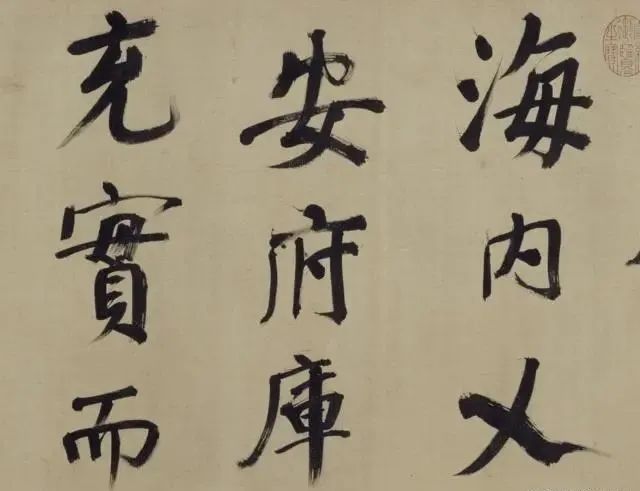 海内乂
安府庫
充實而